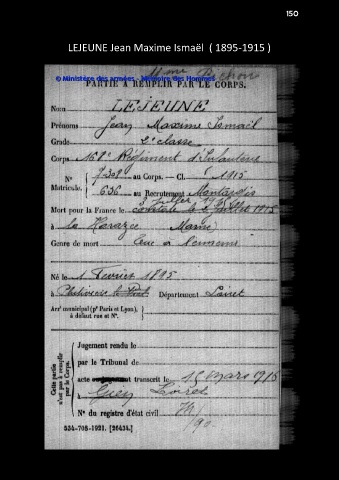 150
LEJEUNE Jean Maxime Ismaël ( 1895-1915 )
© Ministère des armées - Mémoire des Hommes
PARTIE A REMPLIR PAR LE CORPS.
Nom LEJEUNE
Prénoms Jean Maxime Ismaël
Grade 2e classe
Corps 168e Régiment d'Infanterie
N° 7308 au Corps. — Cl. 1915
Matricule. 636 au Recrutement Montargis
Mort pour la France le 2 juillet 1915
à la Harazée Marne
Genre de mort Tué à l'ennemi
Né le 1 Février 1895
à Département Loiret
Arr' municipal (p' Paris et Lyon),
à défaut rue et N°.
Cette partie
n'est pas à remplir
par le Corps.
Jugement rendu le
par le Tribunal de
acte transcrit le 15 mars 1916
à Gien Loiret
N° du registre d'état civil
534-708-1921. [26434.]